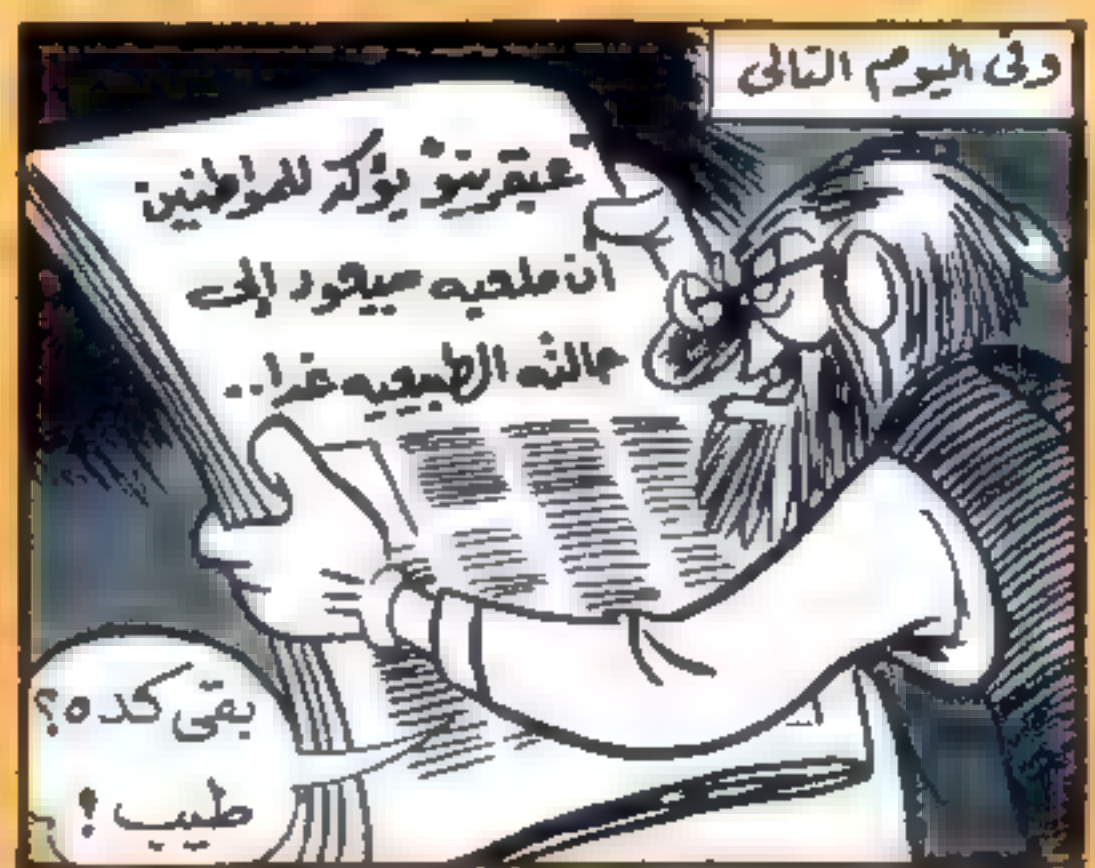 وفى اليوم التالى
عبقرينو يؤكد للمواطنين
ان ملعبه سيعود إلى
حالته الطبيعيه غدا..
بقى كده؟
طيب!